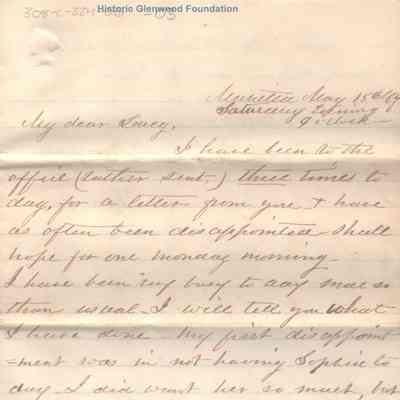 Historic Glenwood Foundation
Marietta May 18th
Saturday Evening
9 o'clock
My dear Lucy,
I have been to the
office (rather sent,) three times to
day, for a letter from you & have
as often been disappointed shall
hope for one monday morning
I have been very busy to day more so
than usual. I will tell you what
I have done My first disappoint
=ment was in not having Sophie to
day I did want her so much, but